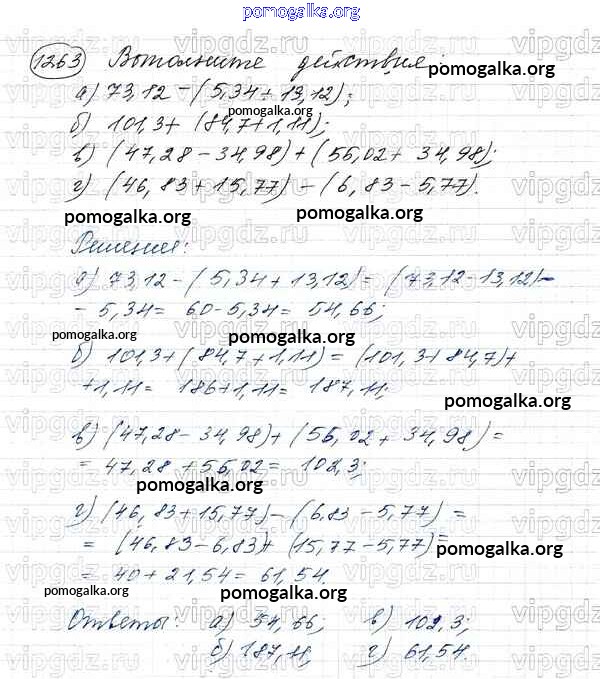 pomogalka.org
1263 Выполните действия:
pomogalka.org
а) 73,12 - (5,34 + 13,12);
pomogalka.org
б) 101,3 + (84,7 + 1,11);
в) (47,28 - 34,98) + (55,02 + 34,98);
г) (46,83 + 15,77) - (6,83 - 5,77).
pomogalka.org
pomogalka.org
Решение:
а) 73,12 - (5,34 + 13,12) = (73,12 - 13,12) -
- 5,34 = 60 - 5,34 = 54,66;
pomogalka.org
pomogalka.org
б) 101,3 + (84,7 + 1,11) = (101,3 + 84,7) +
+ 1,11 = 186 + 1,11 = 187,11;
pomogalka.org
в) (47,28 - 34,98) + (55,02 + 34,98) =
= 47,28 + 55,02 = 102,3;
pomogalka.org
г) (46,83 + 15,77) - (6,83 - 5,77) =
= (46,83 - 6,83) + (15,77 - 5,77) =
pomogalka.org
= 40 + 21,54 = 61,54.
pomogalka.org
Ответы: а) 54,66; в) 102,3;
б) 187,11; г) 61,54.
pomogalka.org
pomogalka.org
vipgdz.ru